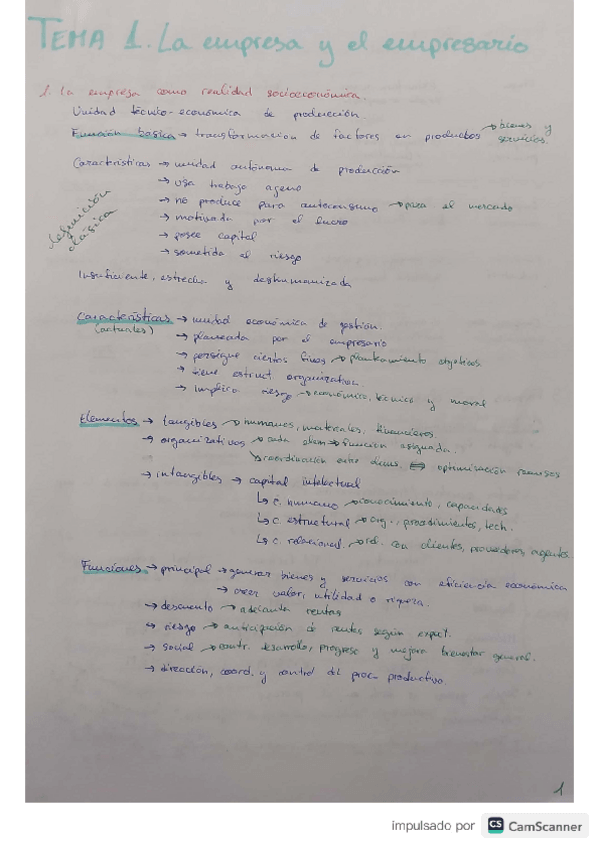 TEMA 1. La empresa y el empresario
1. La empresa como realidad socioeconómica.
Unidad técnico-económica de producción.
Función básica → transformación de factores en productos → bienes y servicios.
Características → unidad autónoma de producción
→ usa trabajo ajeno
→ no produce para autoconsumo → para el mercado
→ motivada por el lucro
→ posee capital
→ sometida al riesgo
definición clásica
Insuficiente, estrecha y deshumanizada
Características → unidad económica de gestión.
(actuales) → planeada por el empresario
→ persigue ciertos fines → planteamiento objetivos.
→ tiene estruct. organizativa.
→ implica riesgo → económico, técnico y moral
Elementos → tangibles → humanos, materiales, financieros.
→ organizativos → cada elem → función asignada.
↘ coordinación entre elems. ⇔ optimización recursos
→ intangibles → capital intelectual
↳ c. humano → conocimiento, capacidades
↳ c. estructural → org., procedimientos, tech.
↳ c. relacional. → rel. con clientes, proveedores, agentes.
Funciones → principal → generar bienes y servicios con eficiencia económica
→ crear valor, utilidad o riqueza.
→ descuento → adelanta rentas
→ riesgo → anticipación de rentas según expect.
→ social → contr. desarrollo, progreso y mejora bienestar general.
→ dirección, coord. y control del proc. productivo.
1
impulsado por CS CamScanner